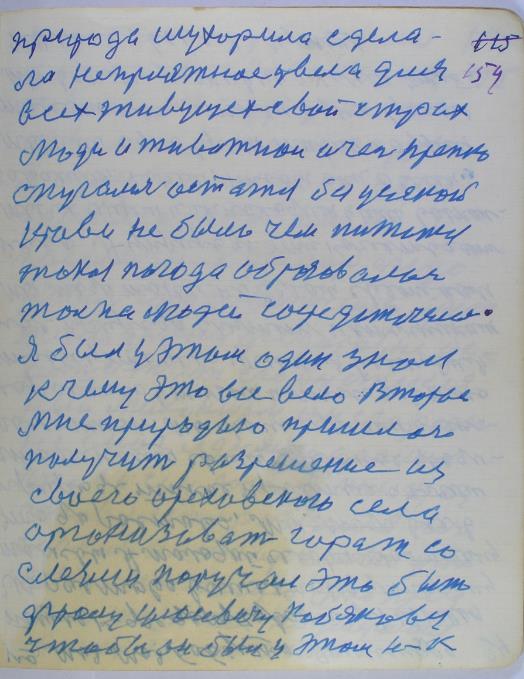 природа шухорила сдела- 115
ла неприятное ввела для 154
всех живущех свой страх
люди и животнои очен крепко
спугалия остатся без уеяной
крови не было чем питатся
такая погода образовалая
толпа людей сочредоточено.
Я был у этом один знал
к чему это все вело Второе
мне природою пришлося
получит разрешение из
своего ореховского села
организоват гараж со
слечии поручал это быть
другу Кобзякову
чтобы он был у этом н-к